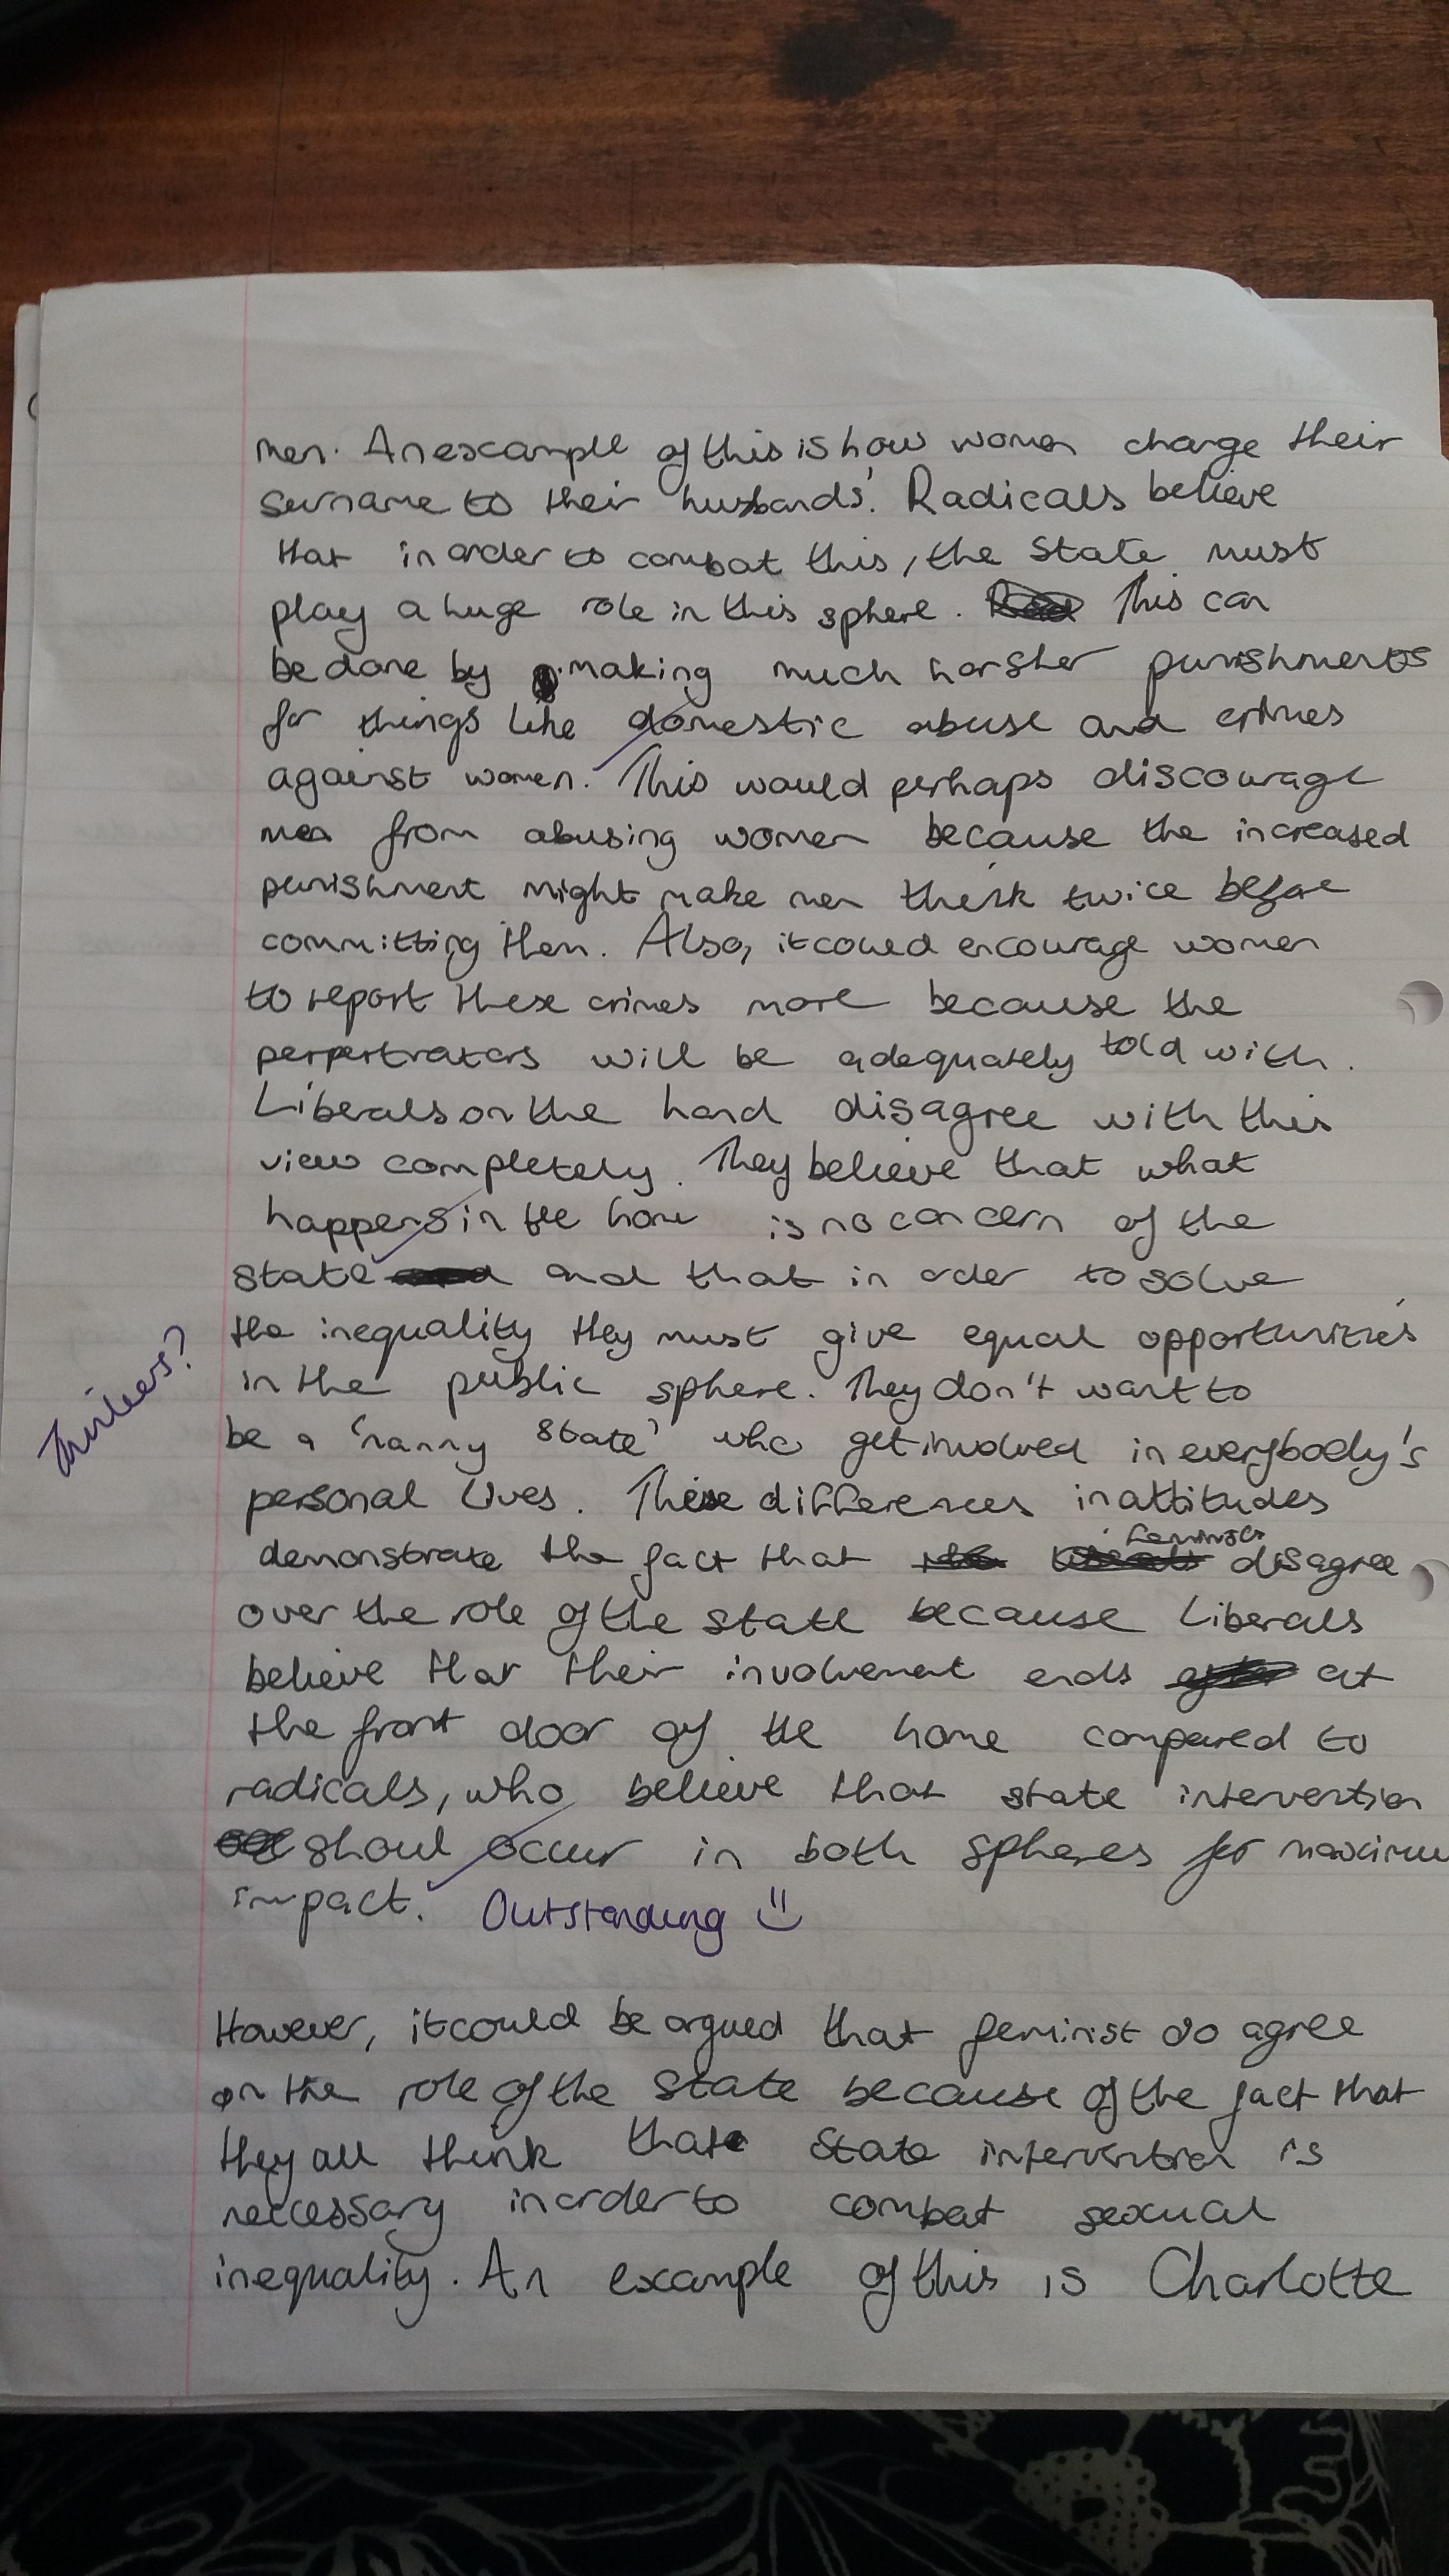 men. An example of this is how women change their
surname to their husbands'. Radicals believe
that in order to combat this, the state must
play a huge role in this sphere. This can
be done by making much harsher punishments
for things like domestic abuse and crimes
against women. This would perhaps discourage
men from abusing women because the increased
punishment might make men think twice before
committing them. Also, it could encourage women
to report these crimes more because the
perpertrators will be adequately told with.
Liberals on the hand disagree with this
view completely. They believe that what
happens in the home is no concern of the
state and that in order to solve
the inequality they must give equal opportunities
in the public sphere. They don't want to
Thinkers?
be a 'nanny state' who get involved in everybody's
personal lives. These differences in attitudes
demonstrate the fact that feminists disagree
over the role of the state because Liberals
believe that their involvement ends at
the front door of the home compared to
radicals, who believe that state intervention
shoul occur in both spheres for maximum
impact. Outstanding
However, it could be argued that feminist do agree
on the role of the state because of the fact that
they all think that state intervention is
neccessary in order to combat sexual
inequality. An example of this is Charlotte